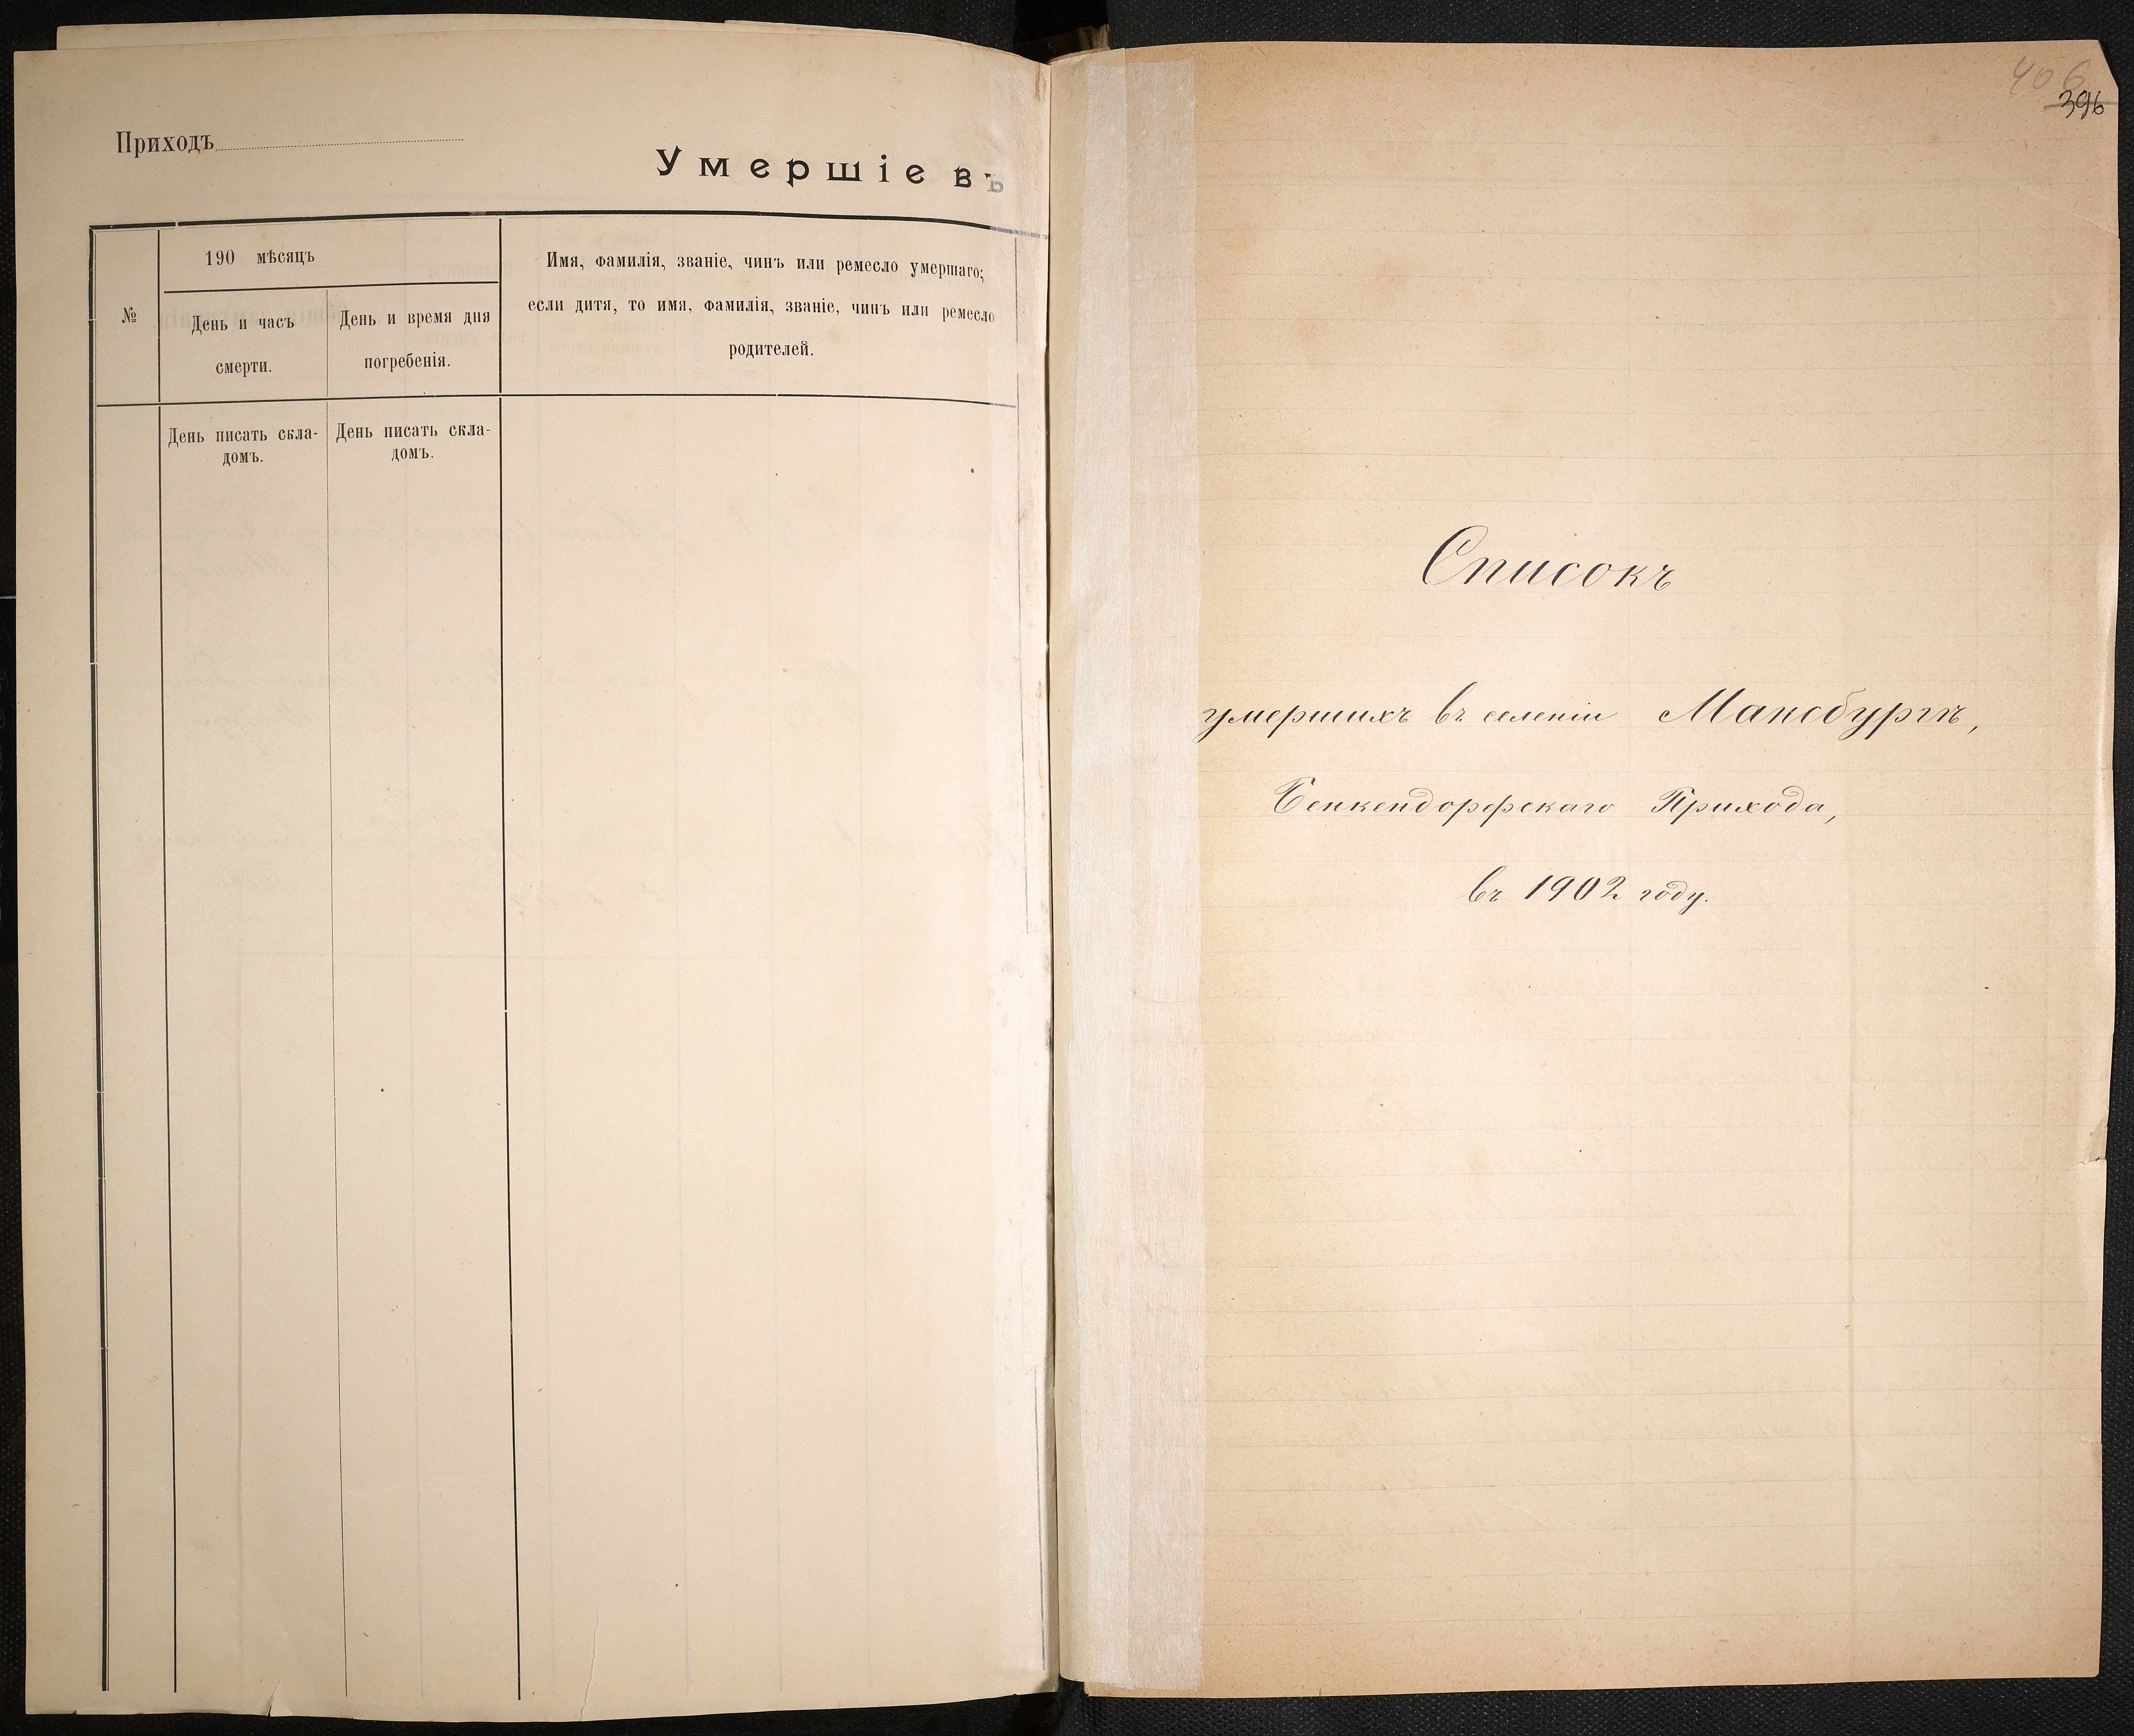 Приходъ
Умершіе въ
№
190 мѣсяцъ
День и часъ
смерти.
День и время дня
погребенія.
Имя, фамилія, званіе, чинъ или ремесло умершаго;
если дитя, то имя, фамилія, званіе, чинъ или ремесло
родителей.
День писать скла-
домъ.
День писать скла-
домъ.
406
396
Списокъ
умершихъ въ селеніи Мансбургъ,
Бенкендорфскаго Прихода,
въ 1902 году.